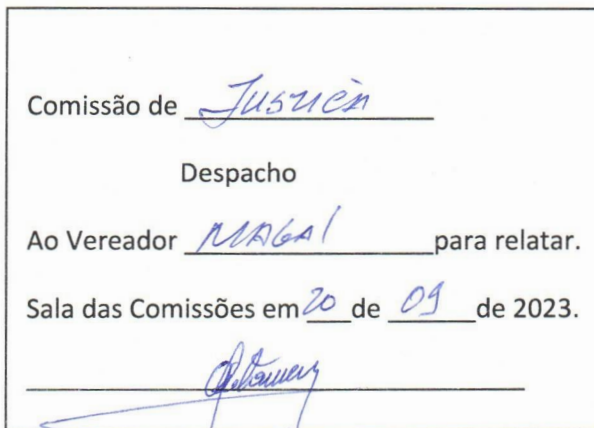 Comissão de Justiça
Despacho
Ao Vereador MAGAL para relatar.
Sala das Comissões em 20 de 09 de 2023.